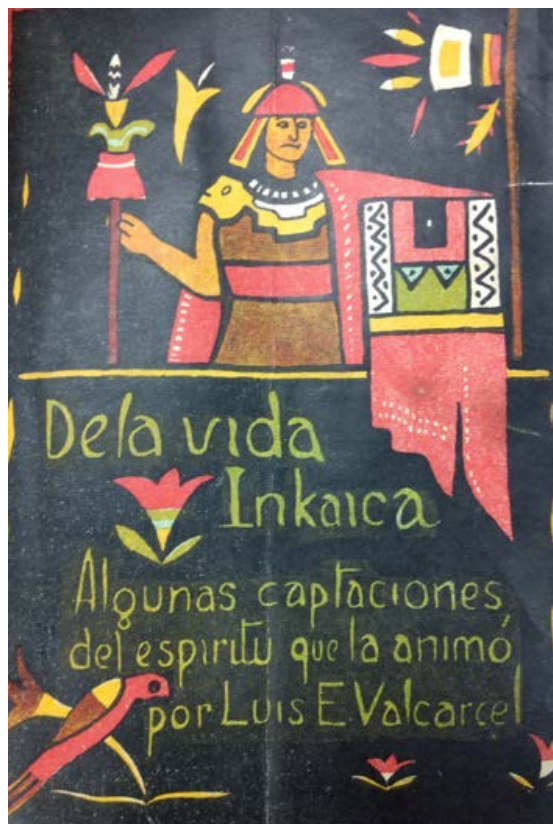 De la vida
Inkaica
Algunas captaciones
del espiritu que la animó
por Luis E Valcarcel